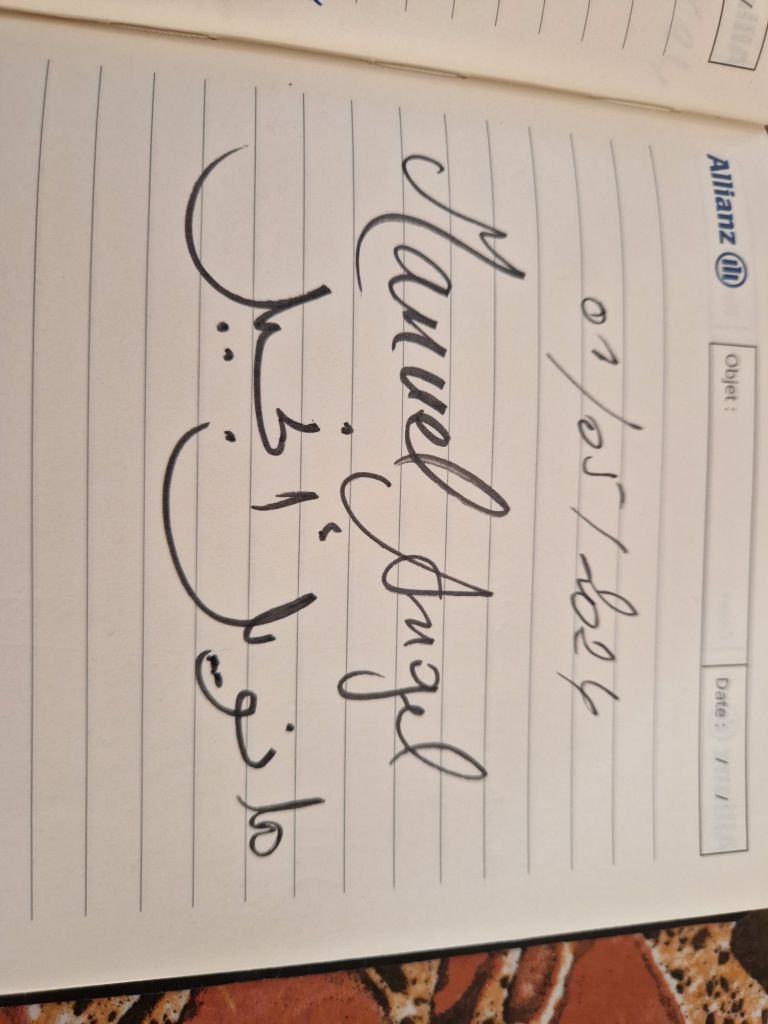 Allianz
Objet :
Date : / /
01/05/2024
Manuel Angel
مانويل أنخيل